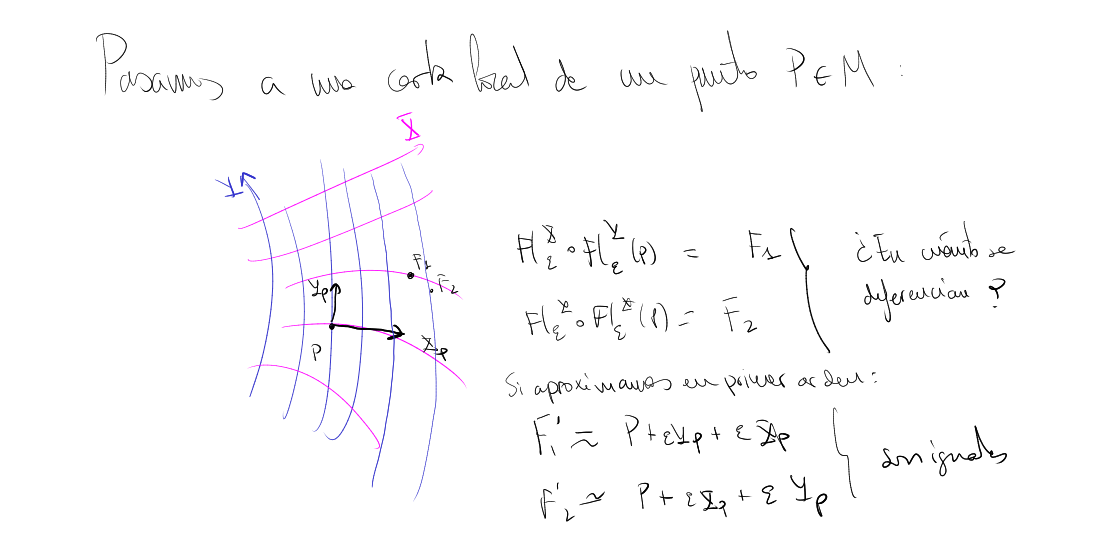 Pasamos a una carta local de un punto P ∈ M :
X
Y
F₁
F₂
Yₚ
P
Xₚ
Fl_ε^X ∘ Fl_ε^Y (p) = F₁
Fl_ε^Y ∘ Fl_ε^X (p) = F₂
¿En cuánto se
diferencian ?
Si aproximamos en primer orden :
F₁' ≃ P + εYₚ + εXₚ
F₂' ≃ P + εXₚ + εYₚ
son iguales